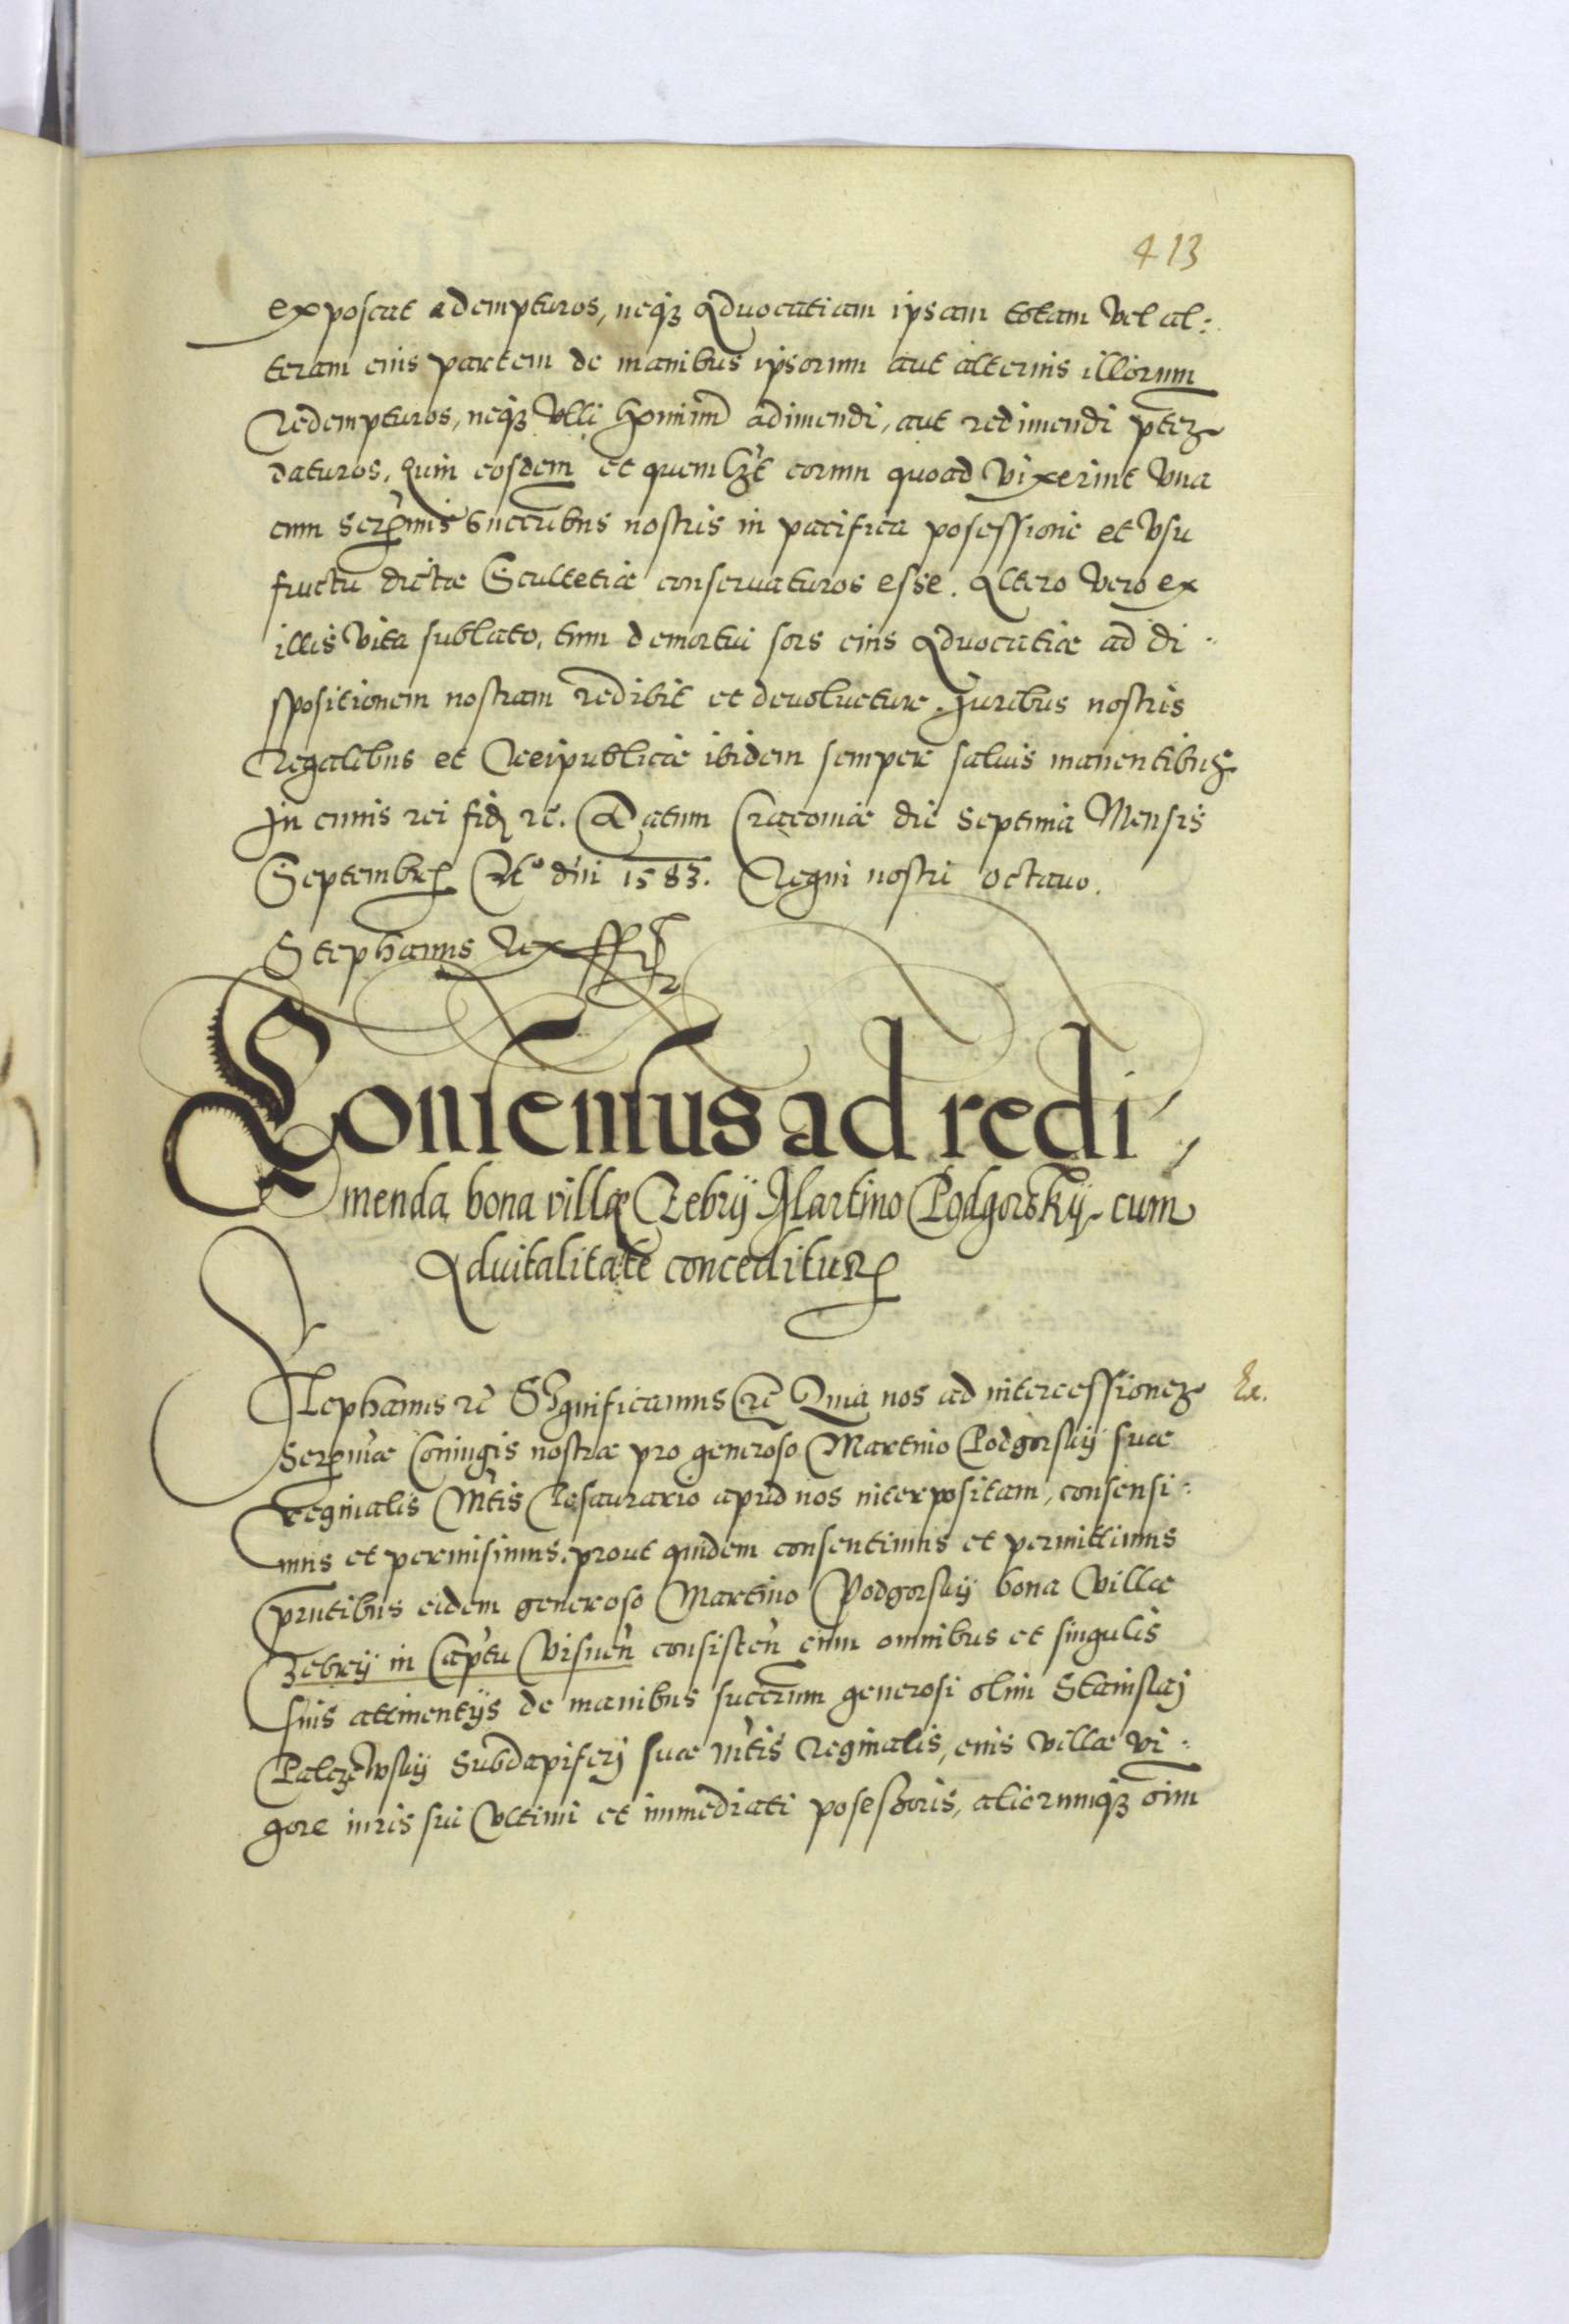 413
exposcat adempturos, neqȝ Aduocatiam ipsam totam Vel al:
teram eius partem de manibus ipsorum aut alterius illorum
Redempturos, neqȝ Vlli hominũ adimendi, aut redimendi ptēz
daturos, Quin eosdem et quemlȝt eorum quoad Vixerint Vna
cum Serẽmis Succribus nostris in pacifica posessione et Vsu
fructu dictæ Scultetiæ conseruaturos esse. Altero Vero ex
illis Vita sublato, tum demortui sors eius Aduocatiæ ad di:
spositionem nostram redibit et deuoluetur. Juribus nostris
Regalibus et Reipublicæ ibidem semper saluis manentibus
In cuius rei fid ꝛc. Datum Cracouiæ die Septima Mensis
Septembr A° dni 1583. Regni nostri octauo.
Stephanus Rex
Consensus ad redi,
menda bona villæ Zebrij Martino Podgorskij cum
Aduitalitate conceditur
Stephanus ꝛc Significamus ꝛc Quia nos ad intercessionez
Sereniæ Coniugis nostræ pro generoso Martino Podgorskij suæ
Reginalis Mtis Tesaurario apud nos interpositam, consensi:
mus et permisimus, prout quidem consentimus et permittimus
pntibus eidem generoso Martino Podgorskij bona Villæ
Zebrij in Captu Visnen consisten cum omnibus et singulis
suis attinentijs de manibus succrum generosi olim Stanislaj
Palczewskij Subdapiferj suæ Mtis Reginalis, eius Villæ Vi:
gore iuris sui Vltimi et immediati posessoris, aliorumqȝ oim